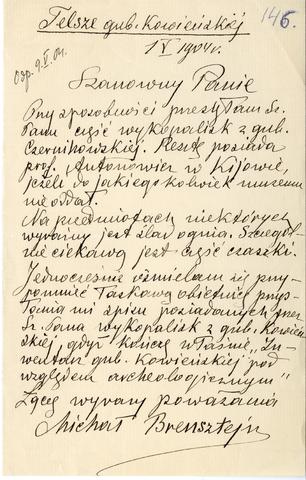 Telsze gub. Kowieńskiej
146.
1 V 1904 r.
Odp. 9.V.04.
Szanowny Panie
Przy sposobności przesyłam Sz.
Panu część wykopalisk z gub.
Czernihowskiej. Resztę posiada
prof. Antonowicz w Kijowie,
jeżeli do jakiegokolwiek muzeum
nie oddał.
Na przedmiotach niektórych
wyraźny jest ślad ognia. Szczegól
nie ciekawą jest część czaszki.
Jednocześnie ośmielam się przy-
pomnieć łaskawą obietnicę przys-
łania mi spisu posiadanych przez
Sz. Pana wykopalisk z gub. Kowień-
skiej gdyż kończę właśnie „In-
wentarz gub. Kowieńskiej pod
względem archeologicznym"
Łączę wyrazy poważania
Michał Brensztejn